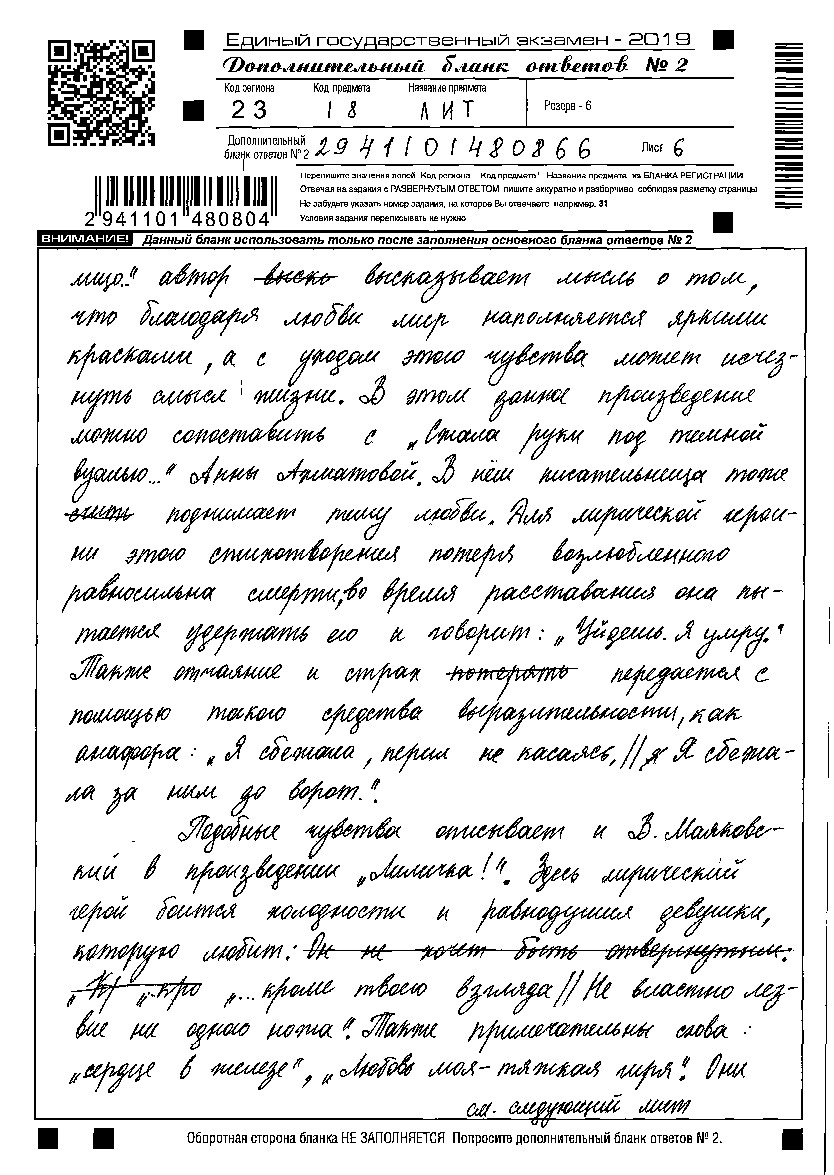 Единый государственный экзамен - 2019
Дополнительный бланк ответов № 2
Код региона Код предмета Название предмета
23 18 ЛИТ Резерв - 6
Дополнительный бланк ответов № 2 2941101480866 Лист 6
Перепишите значения полей Код региона Код предмета Название предмета из БЛАНКА РЕГИСТРАЦИИ
Отвечая на задания с РАЗВЕРНУТЫМ ОТВЕТОМ пишите аккуратно и разборчиво соблюдая разметку страницы
Не забудьте указать номер задания, на которое Вы отвечаете например, 31
Условия задания переписывать не нужно
2 941101 480804
ВНИМАНИЕ! Данный бланк использовать только после заполнения основного бланка ответов № 2
лицо." автор выска высказывает мысль о том,
что благодаря любви мир наполняется яркими
красками, а с уходом этого чувства может исчез-
нуть смысл жизни. В этом данное произведение
можно сопоставить с „Сжала руки под темной
вуалью..." Анны Ахматовой. В нём писательница тоже
поднимает тему любви. Для лирической герои-
ни этого стихотворения потеря возлюбленного
равносильна смерти, во время расставания она пы-
тается удержать его и говорит: „Уйдешь. Я умру."
Также отчаяние и страх потерять передается с
помощью такого средства выразительности, как
анафора: „Я сбежала, перил не касаясь, // Я сбежа-
ла за ним до ворот.".
Подобные чувства описывает и В. Маяковс-
кий в произведении „Лиличка!". Здесь лирический
герой боится холодности и равнодушия девушки,
которую любит: Он не хочет быть отвергнутым:
„Кр „кро „...кроме твоего взгляда // Не властно лез-
вие ни одного ножа". Также примечательны слова:
„сердце в железе", „Любовь моя - тяжкая гиря". Они
см. следующий лист
Оборотная сторона бланка НЕ ЗАПОЛНЯЕТСЯ Попросите дополнительный бланк ответов № 2.